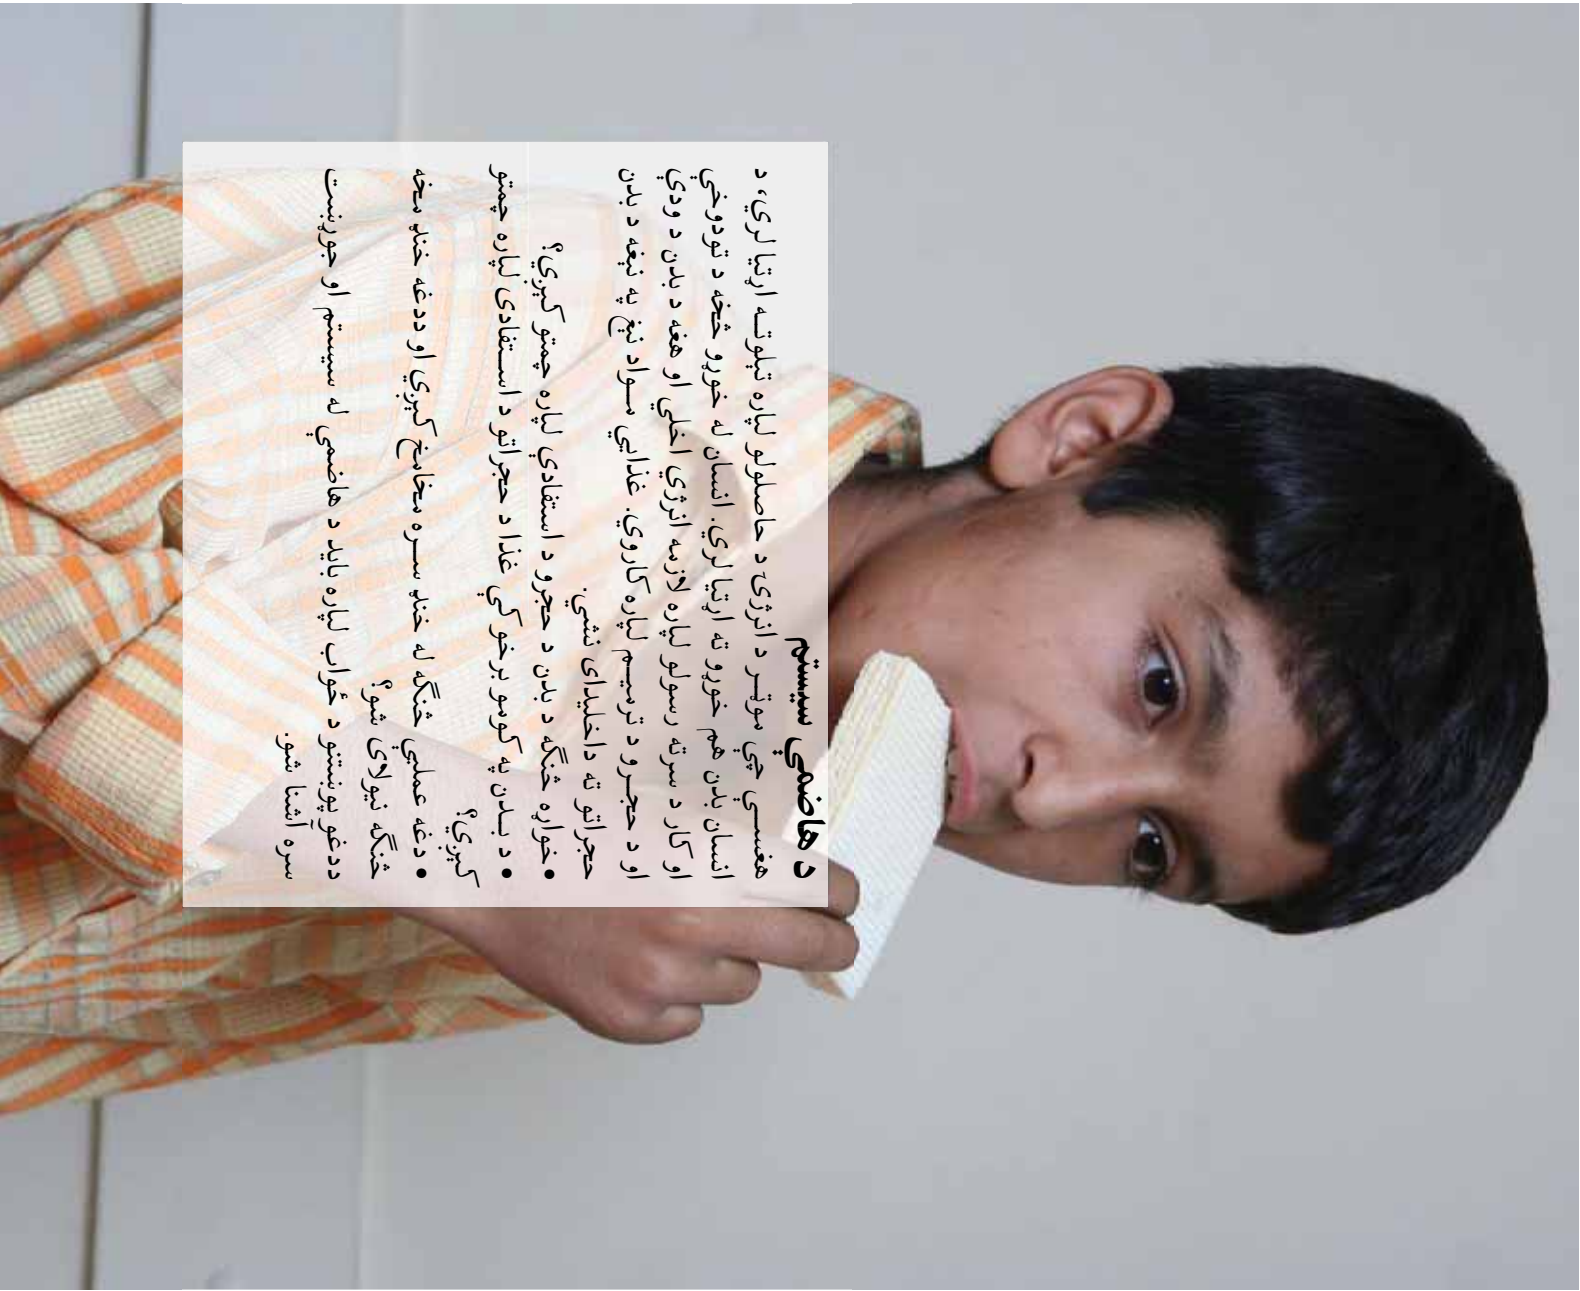 د هاضمې سيستم
هغســې چې موټـر د انرژۍ د حاصلولو لپاره تيلوتــه اړتيا لري، د
انسان بدن هم خوړو ته اړتيا لري. انسان له خوړو څخه د تودوخې
او کار د سرته رسولو لپاره لازمه انرژي اخلي او هغه د بدن د ودې
او د حجــرو د ترميــم لپاره کاروي. غذايي مــواد نېغ په نېغه د بدن
حجراتو ته داخلېدای نشي.
• خواړه څنګه د بدن د حجرو د استفادې لپاره چمتو کيږي؟
• د بــدن په کومو برخو کې غذا د حجراتو د اســتفادې لپاره چمتو
کيږي؟
• دغه عمليې څنګه له خنډ ســره مخامخ کيږي او ددغه خنډ مخه
څنګه نيولای شو؟
ددغو پوښتنو د ځواب لپاره بايد د هاضمې له سيستم او جوړښت
سره آشنا شو.